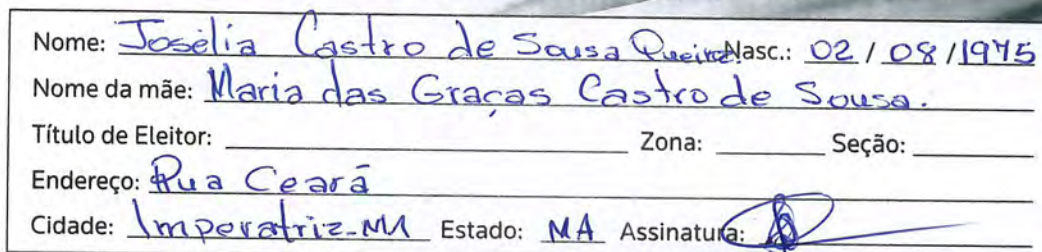 Nome: Josélia Castro de Sousa Queiroz Nasc.: 02/08/1975
Nome da mãe: Maria das Graças Castro de Sousa.
Título de Eleitor: Zona: Seção:
Endereço: Rua Ceará
Cidade: Imperatriz-MA Estado: MA Assinatura: